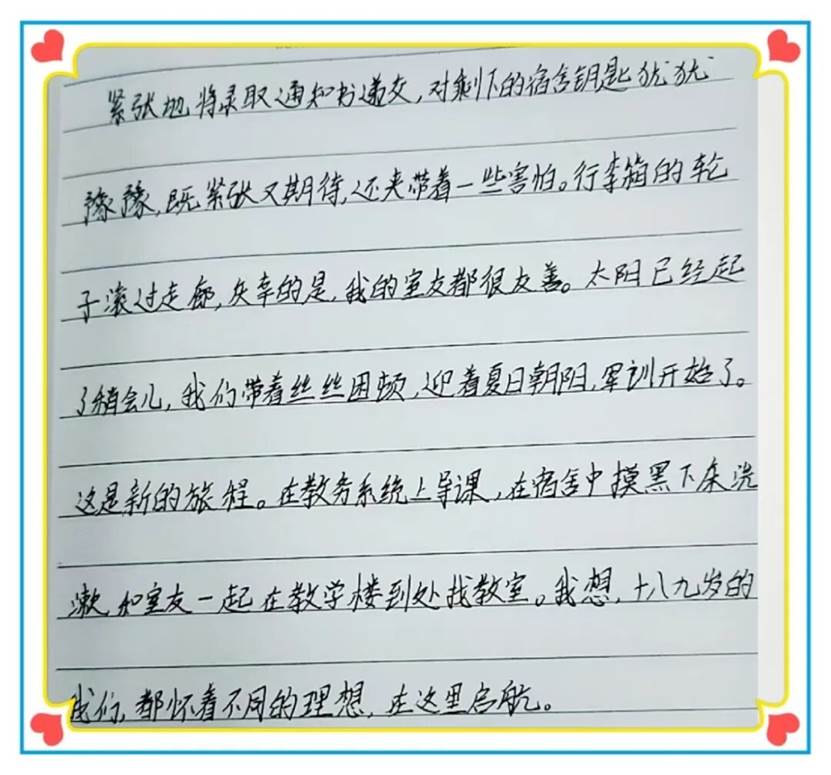 紧张地将录取通知书递交,对剩下的宿舍钥匙犹犹
豫豫,既紧张又期待,还夹带着一些害怕。行李箱的轮
子滚过走廊,庆幸的是,我的室友都很友善。太阳已经起
了稍会儿,我们带着丝丝困顿,迎着夏日朝阳,军训开始了。
这是新的旅程。在教务系统上导课,在宿舍中摸黑下床洗
漱,和室友一起在教学楼到处找教室。我想,十八九岁的
我们,都怀着不同的理想,在这里启航。